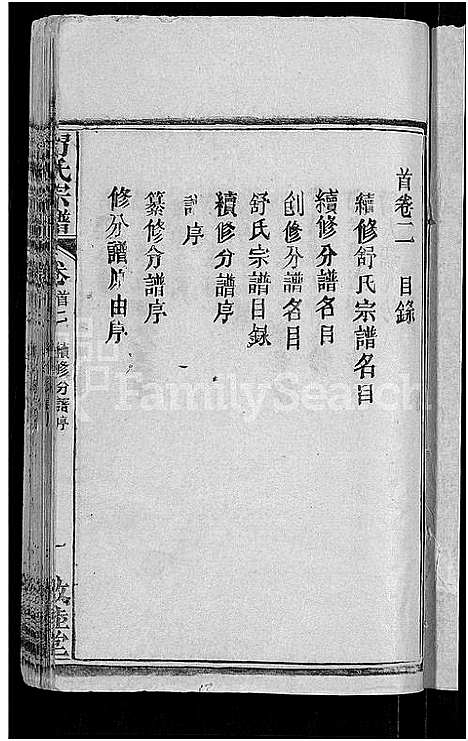 首卷二 目錄
續修舒氏宗譜名目
續修分譜名目
創修分譜名目
舒氏宗譜目録
續修分譜序
序
纂修分譜序
修分譜原由序
氏宗譜 卷首二 續修分譜序 一 敦睦堂
FamilySearch